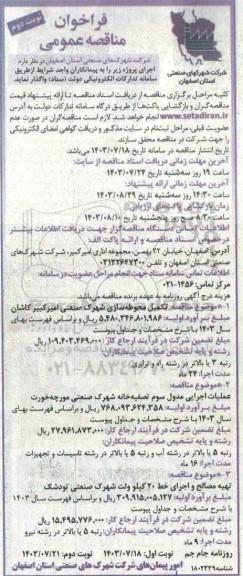 نوبت دوم
فراخوان
مناقصه عمومی
شرکت شهرکهای صنعتی
استان اصفهان
شرکت شهرک‌های صنعتی استان اصفهان در نظر دارد
اجرای پروژه زیر را به پیمانکاران واجد شرایط از طریق
سامانه تدارکات الکترونیکی دولت (ستاد) واگذار نماید.
کلیه مراحل برگزاری مناقصه از دریافت اسناد مناقصه تا ارائه پیشنهاد قیمت
مناقصه‌گران و بازگشایی پاکت‌ها از طریق درگاه سامانه تدارکات دولت به آدرس
www.setadiran.ir انجام خواهد شد. لازم است مناقصه‌گران در صورت عدم
عضویت قبلی، مراحل ثبت‌نام در سایت مذکور و دریافت گواهی امضای الکترونیکی
را جهت شرکت در مناقصه محقق سازند.
تاریخ انتشار مناقصه در سامانه تاریخ ۱۴۰۳/۰۷/۱۸ می‌باشد.
آخرین مهلت زمانی دریافت اسناد مناقصه از سایت:
ساعت ۱۹ روز سه‌شنبه تاریخ ۱۴۰۳/۰۷/۲۴
آخرین مهلت زمانی ارائه پیشنهاد:
ساعت ۱۴:۳۰ روز سه‌شنبه تاریخ
زمان بازگشایی پاکت‌های ارزیابی:
ساعت ۸:۳۰ صبح روز پنجشنبه تاریخ ۱۴۰۳/۰۸/۱۰
اطلاعات تماس دستگاه مناقصه‌گزار جهت دریافت اطلاعات بیشتر
در خصوص اسناد مناقصه و ارائه پاکت الف:
آدرس: اصفهان، خیابان ۲۲ بهمن، مجموعه اداری امیرکبیر، شرکت شهرک‌های
صنعتی استان اصفهان و تلفن:
اطلاعات تماس سامانه ستاد جهت انجام مراحل عضویت در سامانه:
مرکز تماس: ۱۴۵۶-۰۲۱
هزینه درج آگهی روزنامه به عهده برنده مناقصه می‌باشد.
۱- موضوع مناقصه: تکمیل محوطه‌سازی شهرک صنعتی امیرکبیر کاشان
مبلغ برآورد اولیه: ریال و براساس فهرست بهای
سال ۱۴۰۳ با شرح مشخصات و جداول پیوست
مبلغ تضمین شرکت در فرآیند ارجاع کار: ریال
رشته و پایه تشخیص صلاحیت پیمانکاران:
رتبه ۳ یا بالاتر در رشته راه و ترابری
مدت اجرا: ماه
۲- موضوع مناقصه:
عملیات اجرایی مدول سوم تصفیه‌خانه شهرک صنعتی مورچه‌خورت
مبلغ برآورد اولیه: ریال و براساس فهرست بهای
سال ۱۴۰۳ با شرح مشخصات و جداول پیوست
مبلغ تضمین شرکت در فرآیند ارجاع کار: ریال
رشته و پایه تشخیص صلاحیت پیمانکاران:
رتبه ۵ یا بالاتر در رشته آب و رتبه ۵ یا بالاتر در رشته تاسیسات و تجهیزات
مدت اجرا: ۱۶ ماه
۳- موضوع مناقصه:
تهیه مصالح و اجرای خط ۲۰ کیلو ولت شهرک صنعتی تودشک
مبلغ برآورد اولیه: ریال و براساس فهرست سال ۱۴۰۳
با شرح مشخصات و جداول پیوست
مبلغ تضمین شرکت در فرآیند ارجاع کار: ریال
رشته و پایه تشخیص صلاحیت پیمانکاران:
رتبه ۵ یا بالاتر در رشته نیرو
مدت اجرا: ۹ ماه
روزنامه جام جم نوبت اول: ۱۴۰۳/۰۷/۱۸ نوبت دوم: ۱۴۰۳/۰۷/۲۱
امور پیمان‌های شرکت شهرک های صنعتی استان اصفهان